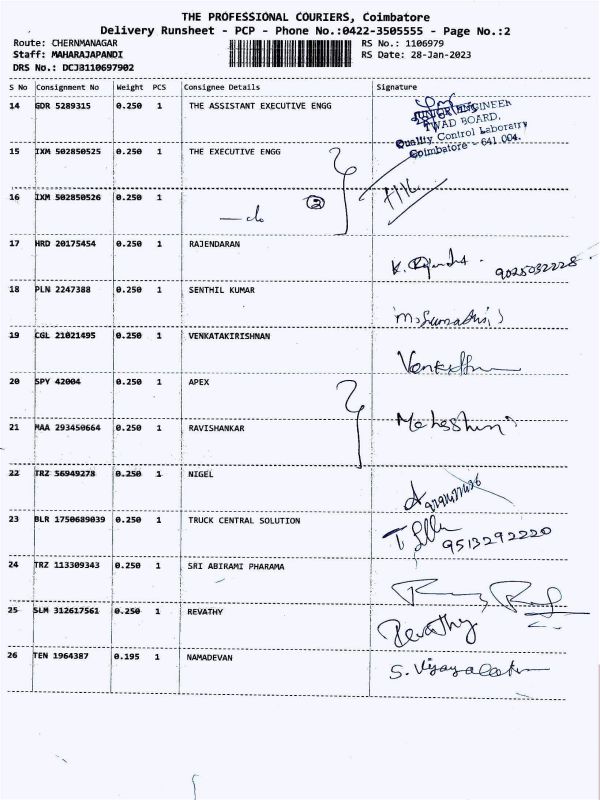 THE PROFESSIONAL COURIERS, Coimbatore
Delivery Runsheet - PCP - Phone No.:0422-3505555 - Page No.:2
Route: CHERNMANAGAR RS No.: 1106979
Staff: MAHARAJAPANDI RS Date: 28-Jan-2023
DRS No.: DCJB110697902
S No Consignment No Weight PCS Consignee Details Signature
14 GDR 5289315 0.250 1 THE ASSISTANT EXECUTIVE ENGG
JUNIOR ENGINEER
TWAD BOARD,
Quality Control Laboratry
Coimbatore - 641 004.
15 IXM 502850525 0.250 1 THE EXECUTIVE ENGG
16 IXM 502850526 0.250 1
— do 2
17 HRD 20175454 0.250 1 RAJENDARAN
9025032228
18 PLN 2247388 0.250 1 SENTHIL KUMAR
19 CGL 21021495 0.250 1 VENKATAKIRISHNAN
20 SPY 42004 0.250 1 APEX
21 MAA 293450664 0.250 1 RAVISHANKAR
22 TRZ 56949278 0.250 1 NIGEL
23 BLR 1750689039 0.250 1 TRUCK CENTRAL SOLUTION
9513292220
24 TRZ 113309343 0.250 1 SRI ABIRAMI PHARAMA
25 SLM 312617561 0.250 1 REVATHY
Revathy
26 TEN 1964387 0.195 1 NAMADEVAN